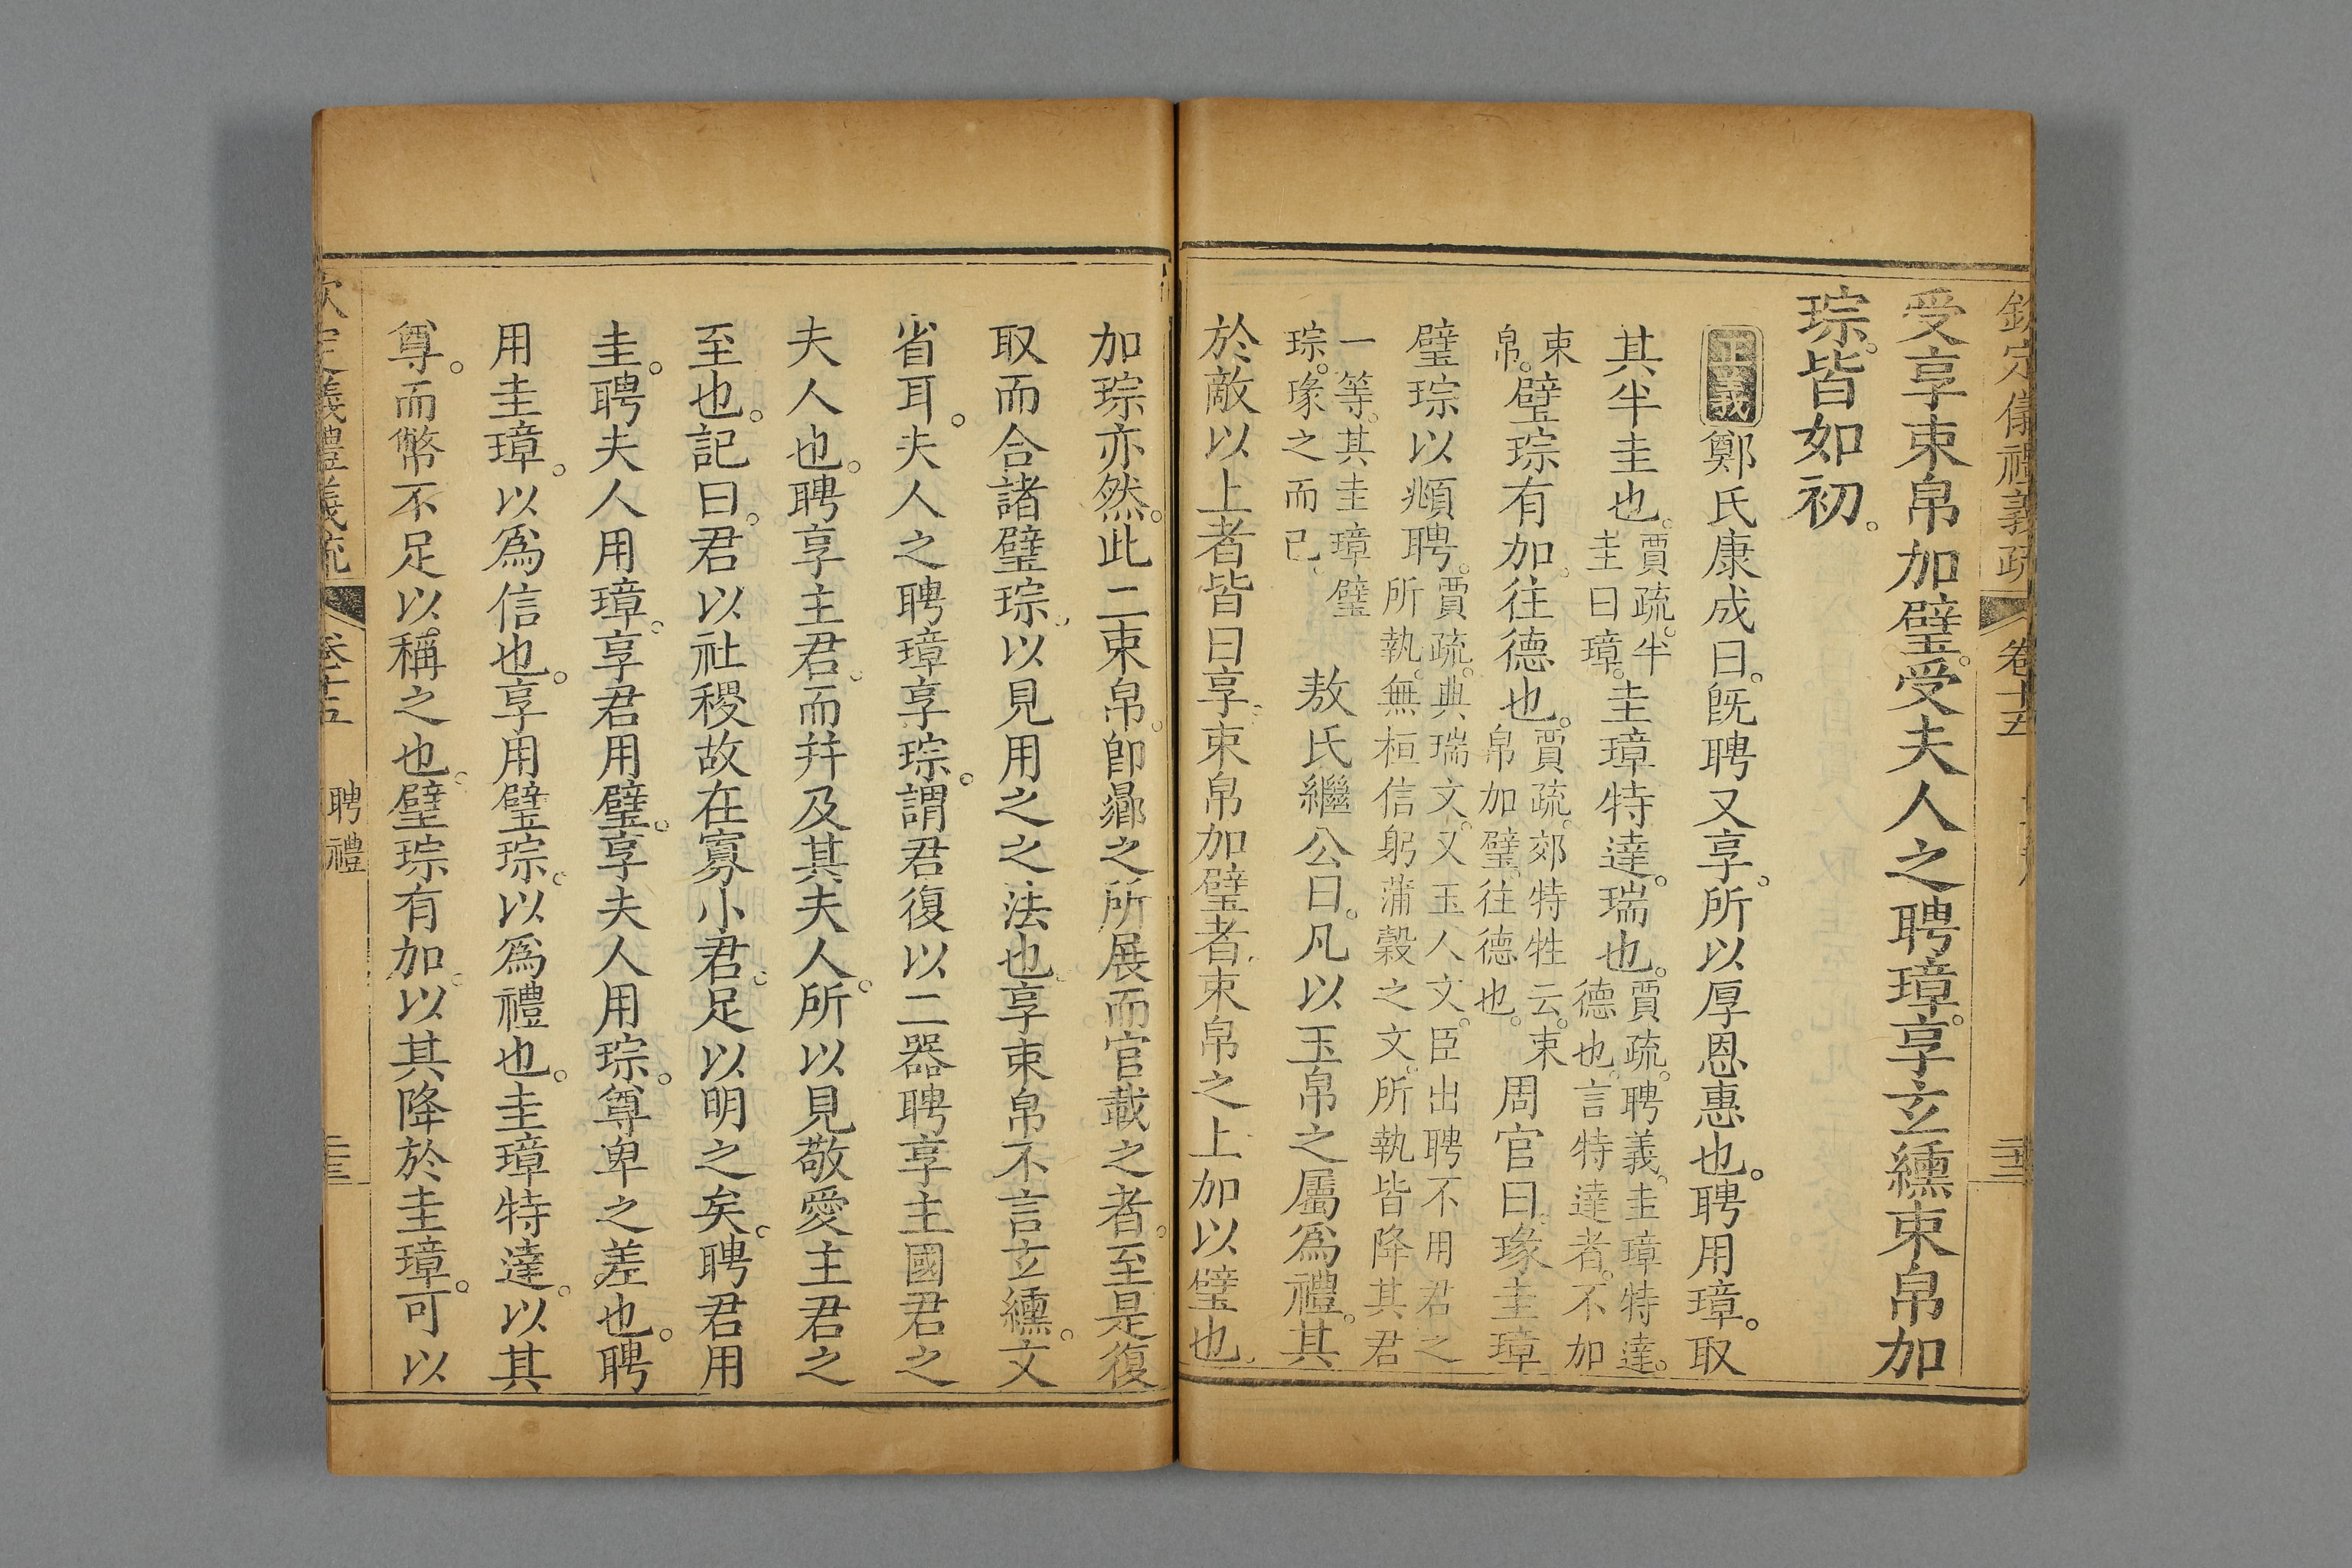 欽定儀禮義疏 卷十五
受享束帛加璧。受夫人之聘璋。享玄纁束帛加
琮。皆如初。
正義 鄭氏康成曰。旣聘又享。所以厚恩惠也。聘用璋。取
其半圭也。賈疏。半圭曰璋。圭璋特達。瑞也。賈疏。聘義。圭璋特達。德也。言特達者。不加
束帛。璧琮有加。往德也。賈疏。郊特牲云。束帛加璧。往德也。周官曰。瑑圭璋
璧琮以頫聘。賈疏。典瑞文。又玉人文。臣出聘不用君之所執。無桓信躬蒲穀之文。所執皆降其君
一等。其圭璋璧琮。瑑之而已。敖氏繼公曰。凡以玉帛之屬爲禮。其
於敵以上者皆曰享。束帛加璧者。束帛之上加以璧也。
加琮亦然。此二束帛。卽曏之所展而官載之者。至是復
取而合諸璧琮。以見用之之法也。享束帛不言玄纁。文
省耳。夫人之聘璋享琮。謂君復以二器聘享主國君之
夫人也。聘享主君。而幷及其夫人。所以見敬愛主君之
至也。記曰。君以社稷故在寡小君。足以明之矣。聘君用
圭。聘夫人用璋。享君用璧。享夫人用琮。尊卑之差也。聘
用圭璋。以爲信也。享用璧琮。以爲禮也。圭璋特達。以其
尊。而幣不足以稱之也。璧琮有加。以其降於圭璋。可以
欽定儀禮義疏 卷十五 聘禮 二十三